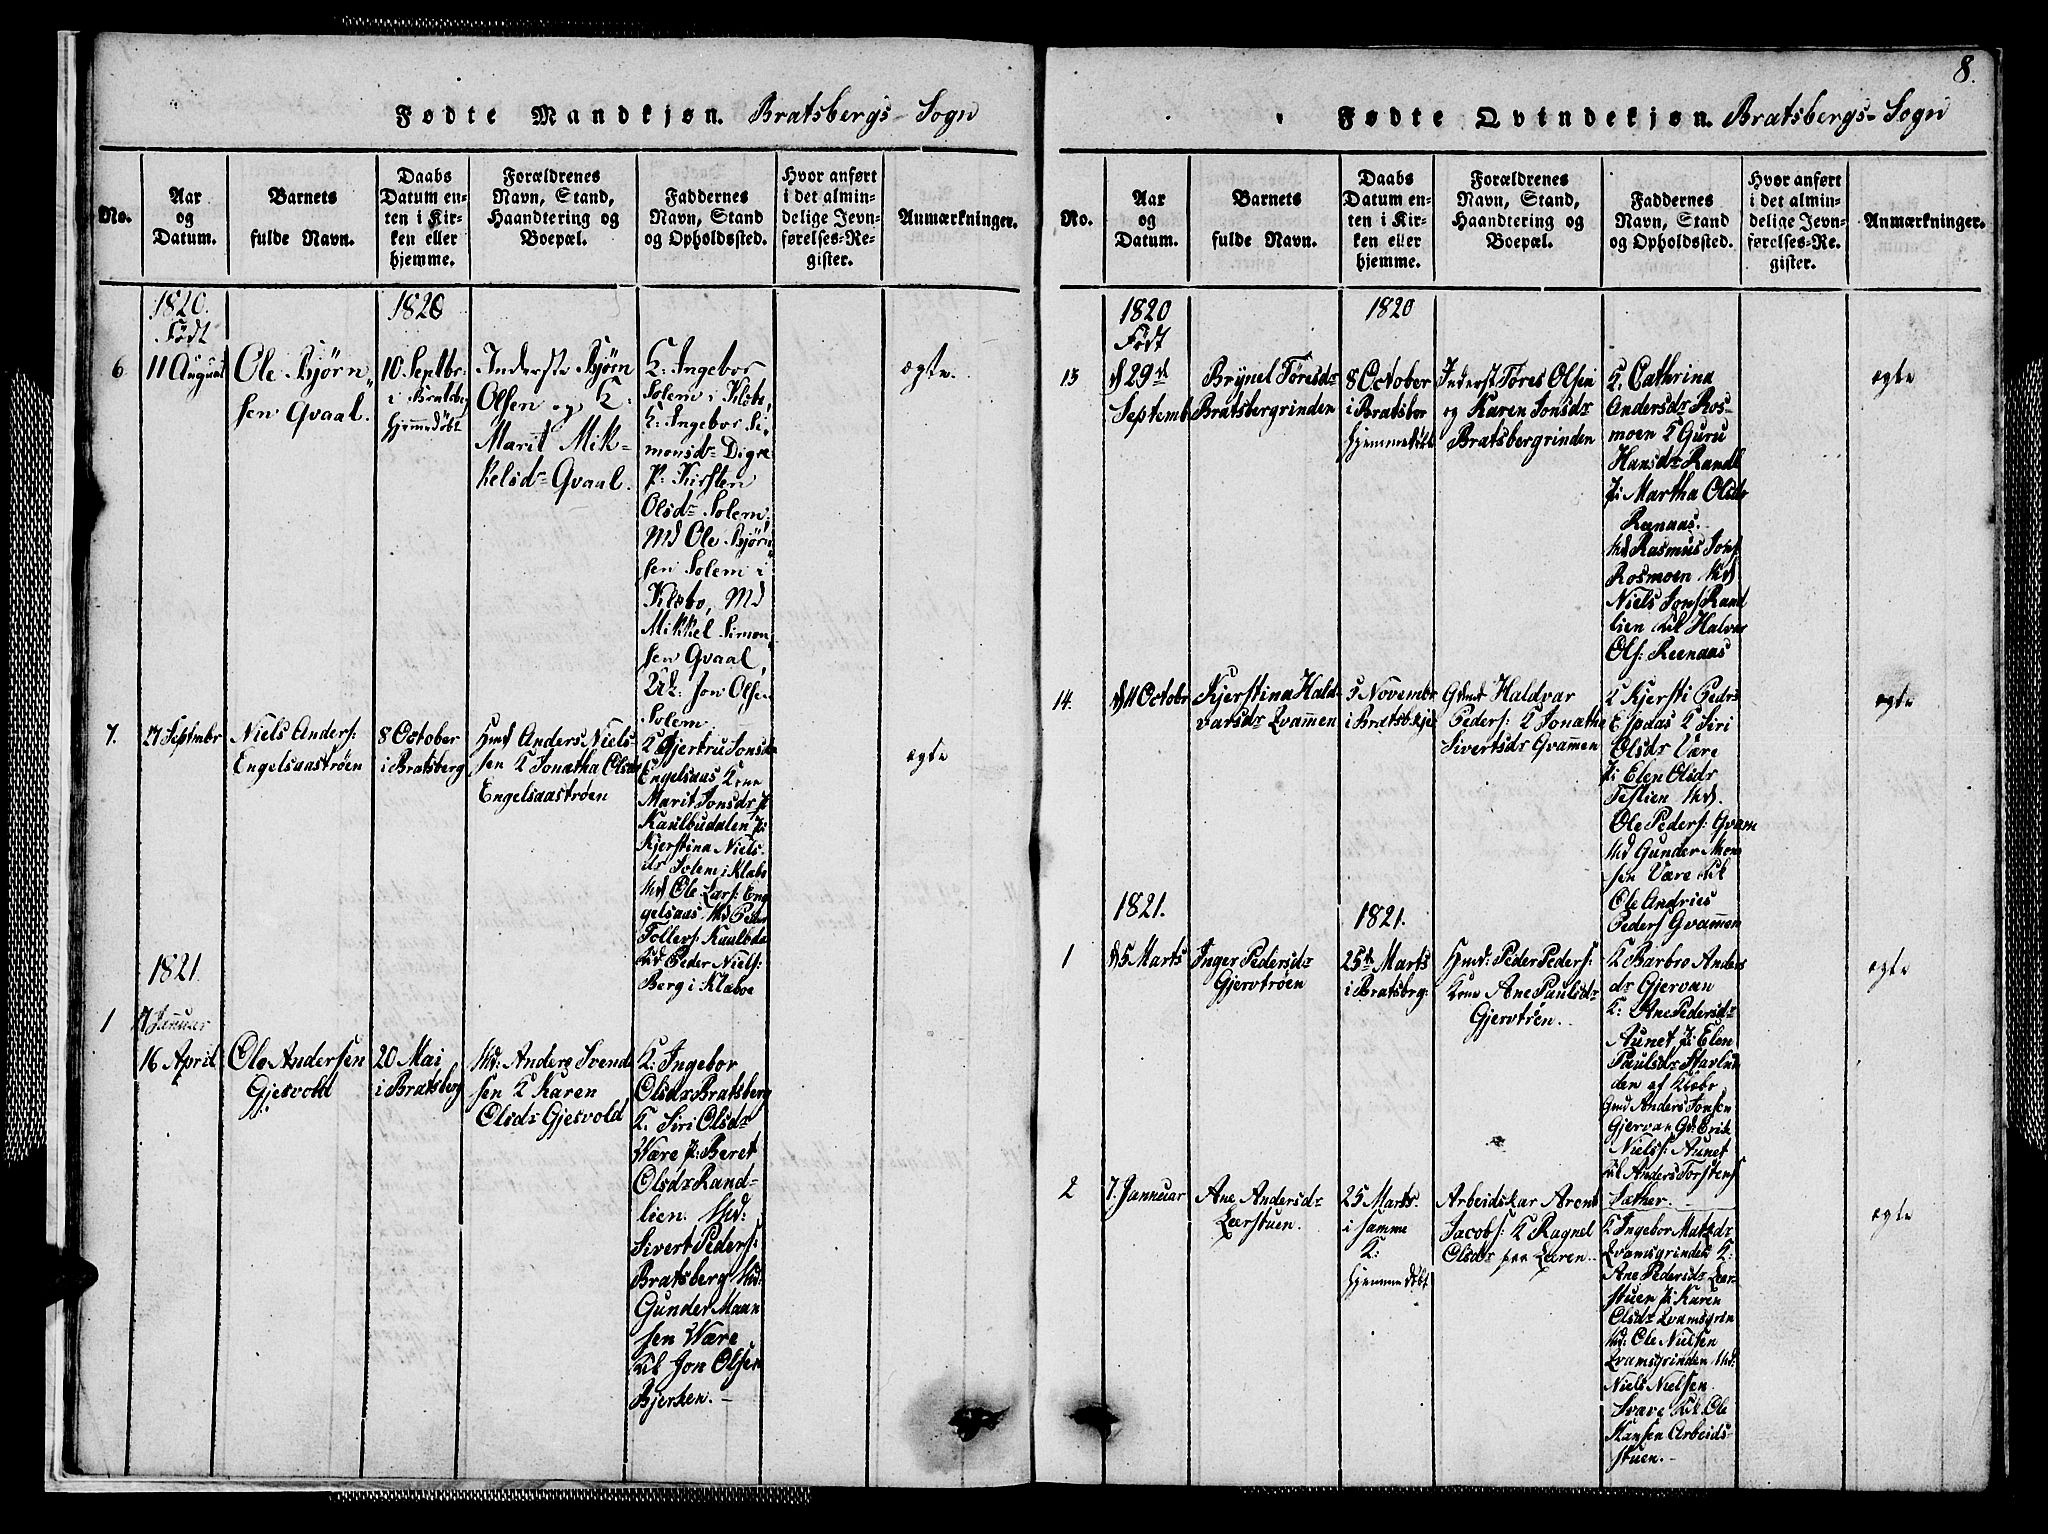 Fødte Mandkjøn. Bratsbergs Sogn
No.
Aar
og
Datum.
Barnets
fulde Navn.
Daabs
Datum en-
ten i Kir-
ken eller
hjemme.
Forældrenes
Navn, Stand,
Haandtering og
Boepæl.
Faddernes
Navn, Stand
og Opholdssted.
Hvor anført
i det almin-
delige Jevn-
førelses-Re-
gister.
Anmærkninger.
1820.
Født
1820
6
11 August
Ole Bjørn
sen Qvaal.
10. Septbr.
i Bratsberg
hjemmedøbt
Inderste Bjørn
Olsen og K.
Marit Mik-
kelsdr Qvaal.
K: Ingebor
Solem i Klobo,
K: Ingebor Si
monsdr Digre
P: Kirsten
Olsdr Solem,
Md Ole Bjørn
sen Solem i
Klobo, Md
Mikkel Simon
sen Qvaal,
Uk: Jon Olsen
Solem
ægte.
7.
27 Septmbr
Niels Anders:
Engelsaastrøen
8 October
i Bratsberg
Hmd Anders Niels-
sen K Jonatha Olsdr
Engelsaastrøen
K Gjertru Jonsdr
Engelsaas Kone
Marit Jonsdr
Kaulbudalen P:
Kjerstina Niels-
dr Solem i Klabo
Md Ole Lars: Eng
gelsaas. Md Peder
Tollers: Kaulbda
Ukl Peder Niels:
Berg i Klaboe
ægte
1821.
1
17 Januar
16 April
Ole Andersen
Gjesvold
20 Mai
i Bratsberg
Md: Anders Svend
sen K Karen
Olsdr Gjesvold
K: Ingebor
Olsdr Bratsberg
K. Siri Olsdr
Være P: Beret
Olsdr Rand-
lien. Md:
Sivert Peders:
Bratsberg Md:
Gunder Maan
sen Være
Ukl Jon Olsen
Bjerken.
8.
Fødte Qvindekjøn. Bratsbergs- Sogn
No.
Aar
og
Datum.
Barnets
fulde Navn.
Daabs
Datum en-
ten i Kir-
ken eller
hjemme.
Forældrenes
Navn, Stand,
Haandtering og
Boepæl.
Faddernes
Navn, Stand
og Opholdssted.
Hvor anført
i det almin-
delige Jevn-
førelses-Re-
gister.
Anmærkninger.
1820
Født
1820
13
d 29d
Septemb
Brynel Töresdr
Bratsbergrinden
8 October
i Bratsber
hjemmedöbt
Inderst Töres Olsen
og Karen Jonsdr
Bratsbergrinden
K. Cathrina
Andersdr Ros-
moen K Guru
Hansdr Randl
P: Martha Olsdr
Reenaas.
Md Rasmus Jons
Rosmoen Md
Niels Jons Rand
lien Ukl Halvor
Ols: Reenaas
ægte
14.
d 11 Octobr
Kjerstina Hald-
varsdr Qvammen
5 Novembr
i Bratsbkje
Gmd Haldvar
Peders: K Jonatha
Sivertsdr Qvammen
K Kjersti Pedrs
Espaas K Siri
Olsdr Være
P: Elen Olsdr
Teslien Md.
Ole Peders: Qvam
Md Gunder Mon
sen Være Ukl
Ole Andries
Peders Qvammen
ægte
1821.
1821.
1
d 5 Marts
Inger Pedersdr
Gjervtröen
25de Marts
i Bratsbrg:
Hmd: Peder Peders:
Kone Ane Paulsdr
Gjervtröen.
K Barbro Anders
dr Gjervan
K: Ane Pedersdr
Aunet P: Elen
Paulsdr Stavlun
den af Klæbo
Gmd Anders Jonsen
Gjervan Gd: Erik
Niels: Aunet
Ukl Anders Torstens
Sæther.
ægte
2
7. Jannuar
Ane Andersdr
Leerstuen.
25 Marts.
i samme
K:
hjemmedöbt
Arbeidskar Arent
Jacobs: K Ragnel
Olsdr paa Leeren.
K Ingebor Matsdr
Qvamsgrinden K:
Ane Pedersdr Leer-
stuen P: Karen
Olsdr Qvamsgrin
Md: Ole Nielsen
Qvamsgrinden Md:
Niels Nielsen
Svare Ukl. Ole
Hansen Arbeids-
stuen.
ægte